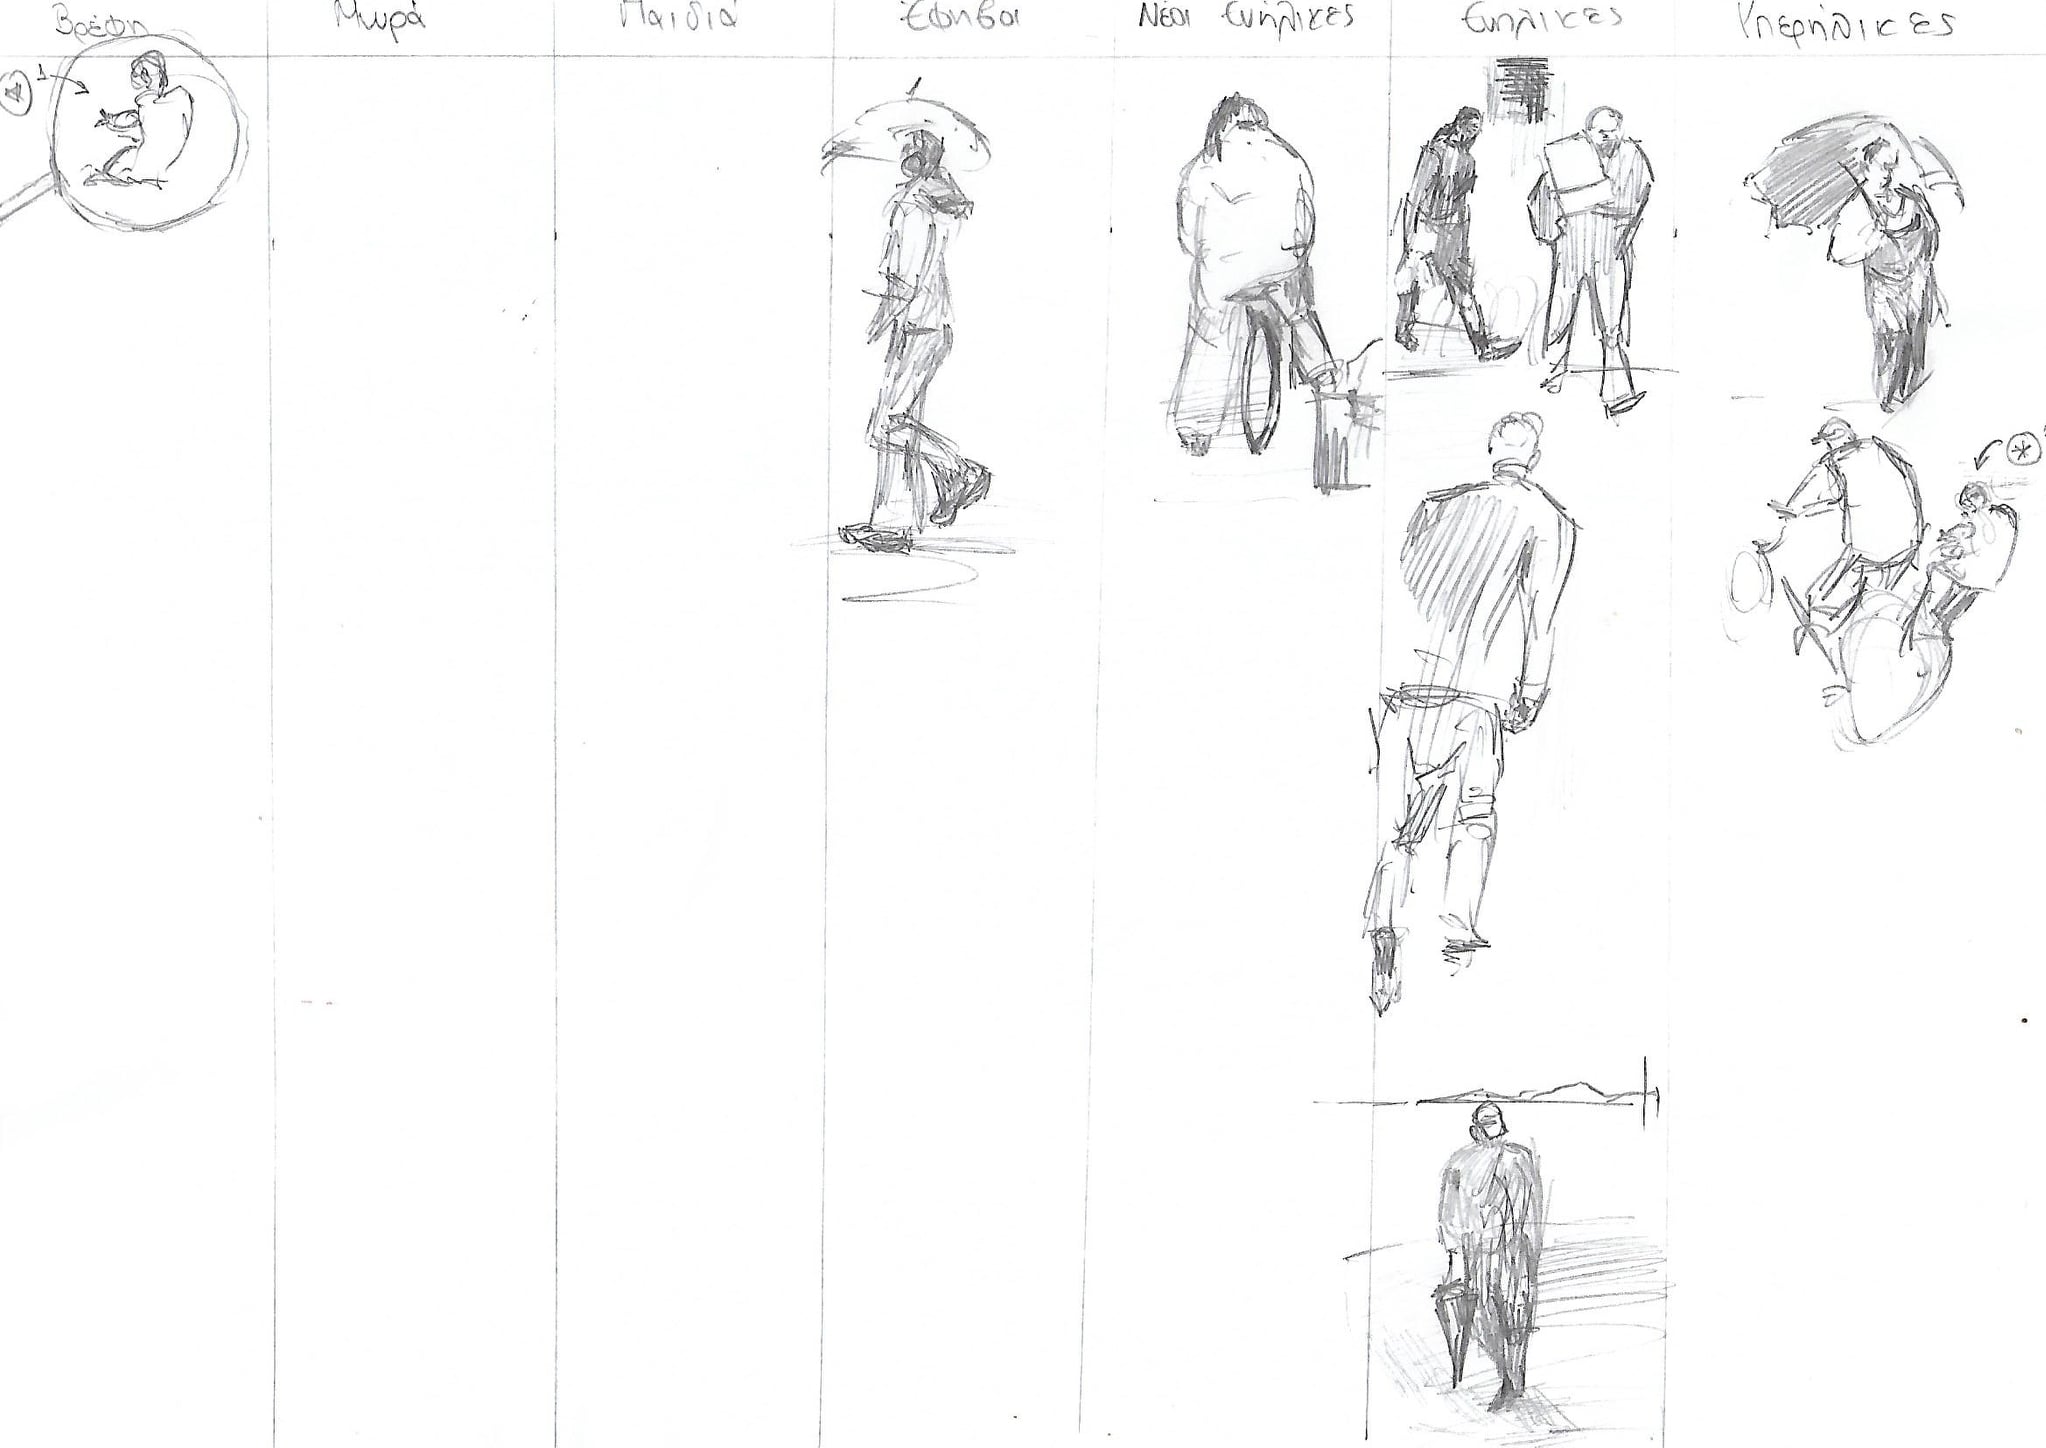 Βρέφη Μωρά Παιδιά Έφηβοι Νέοι Ενήλικες Ενήλικες Υπερήλικες
1